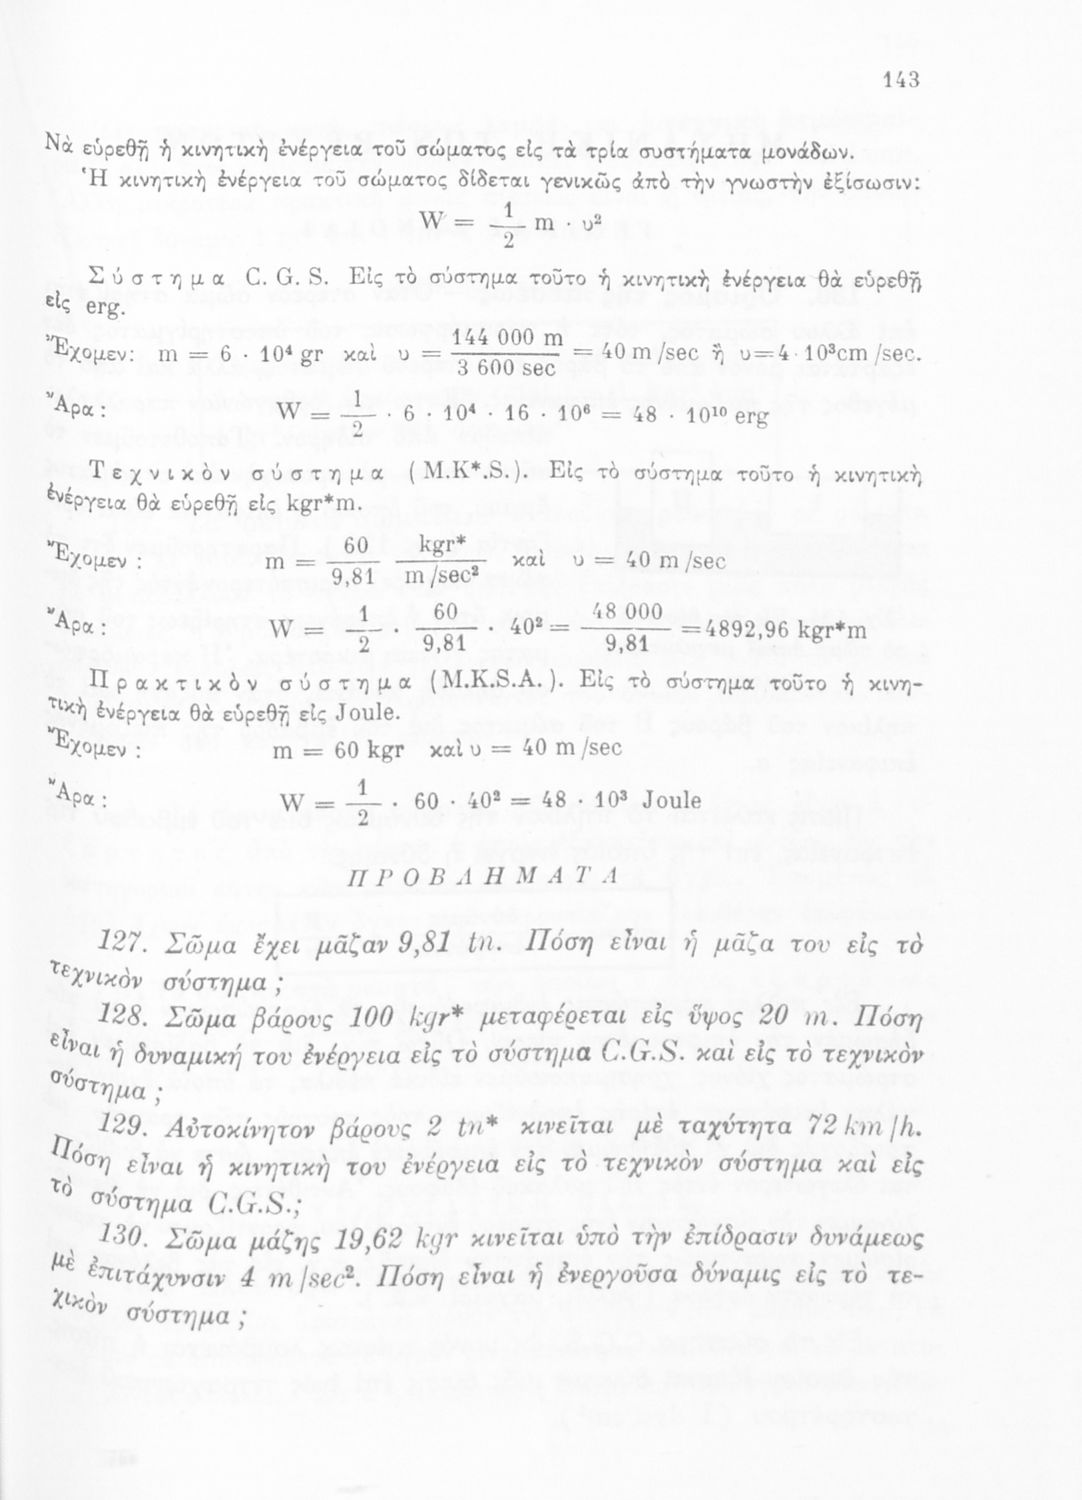 143
Νὰ εὑρεθῇ ἡ κινητικὴ ἐνέργεια τοῦ σώματος εἰς τὰ τρία συστήματα μονάδων.
Ἡ κινητικὴ ἐνέργεια τοῦ σώματος δίδεται γενικῶς ἀπὸ τὴν γνωστὴν ἐξίσωσιν:
W = 1/2 m · υ²
Σύστημα C. G. S. Εἰς τὸ σύστημα τοῦτο ἡ κινητικὴ ἐνέργεια θὰ εὑρεθῇ
εἰς erg.
Ἔχομεν: m = 6 · 10⁴ gr καὶ υ = 144 000 m / 3 600 sec = 40 m/sec ἢ υ=4·10³cm/sec.
Ἄρα: W = 1/2 · 6 · 10⁴ · 16 · 10⁶ = 48 · 10¹⁰ erg
Τεχνικὸν σύστημα (M.K*.S.). Εἰς τὸ σύστημα τοῦτο ἡ κινητικὴ
ἐνέργεια θὰ εὑρεθῇ εἰς kgr*m.
Ἔχομεν: m = 60/9,81 kgr*/m/sec² καὶ υ = 40 m/sec
Ἄρα: W = 1/2 · 60/9,81 · 40² = 48 000/9,81 =4892,96 kgr*m
Πρακτικὸν σύστημα (M.K.S.A.). Εἰς τὸ σύστημα τοῦτο ἡ κινη-
τικὴ ἐνέργεια θὰ εὑρεθῇ εἰς Joule.
Ἔχομεν: m = 60 kgr καὶ υ = 40 m/sec
Ἄρα: W = 1/2 · 60 · 40² = 48 · 10³ Joule
ΠΡΟΒΛΗΜΑΤΑ
127. Σῶμα ἔχει μᾶζαν 9,81 tn. Πόση εἶναι ἡ μᾶζα του εἰς τὸ
τεχνικὸν σύστημα;
128. Σῶμα βάρους 100 kgr* μεταφέρεται εἰς ὕψος 20 m. Πόση
εἶναι ἡ δυναμική του ἐνέργεια εἰς τὸ σύστημα C.G.S. καὶ εἰς τὸ τεχνικὸν
σύστημα;
129. Αὐτοκίνητον βάρους 2 tn* κινεῖται μὲ ταχύτητα 72 km/h.
Πόση εἶναι ἡ κινητικὴ του ἐνέργεια εἰς τὸ τεχνικὸν σύστημα καὶ εἰς
τὸ σύστημα C.G.S.;
130. Σῶμα μάζης 19,62 kgr κινεῖται ὑπὸ τὴν ἐπίδρασιν δυνάμεως
μὲ ἐπιτάχυνσιν 4 m/sec². Πόση εἶναι ἡ ἐνεργοῦσα δύναμις εἰς τὸ τε-
χικὸν σύστημα;